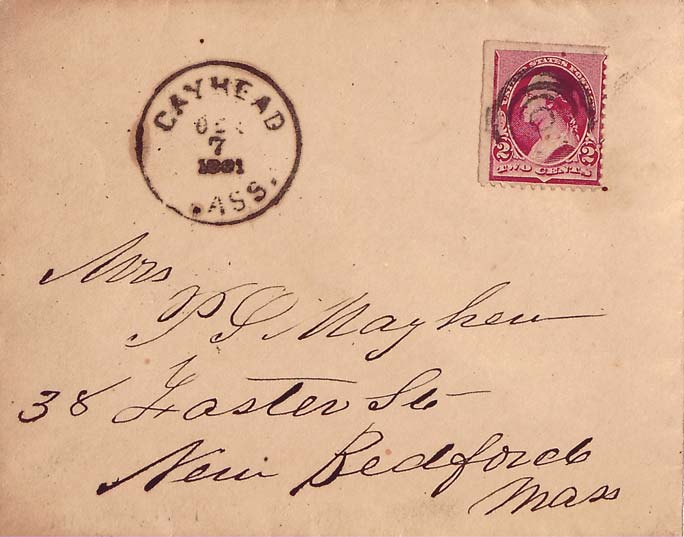 GAYHEAD
7
1891
MASS.
UNITED STATES POSTAGE
2 2
TWO CENTS
Mrs
P S Mayhew
38 Foster St
New Bedford
Mass